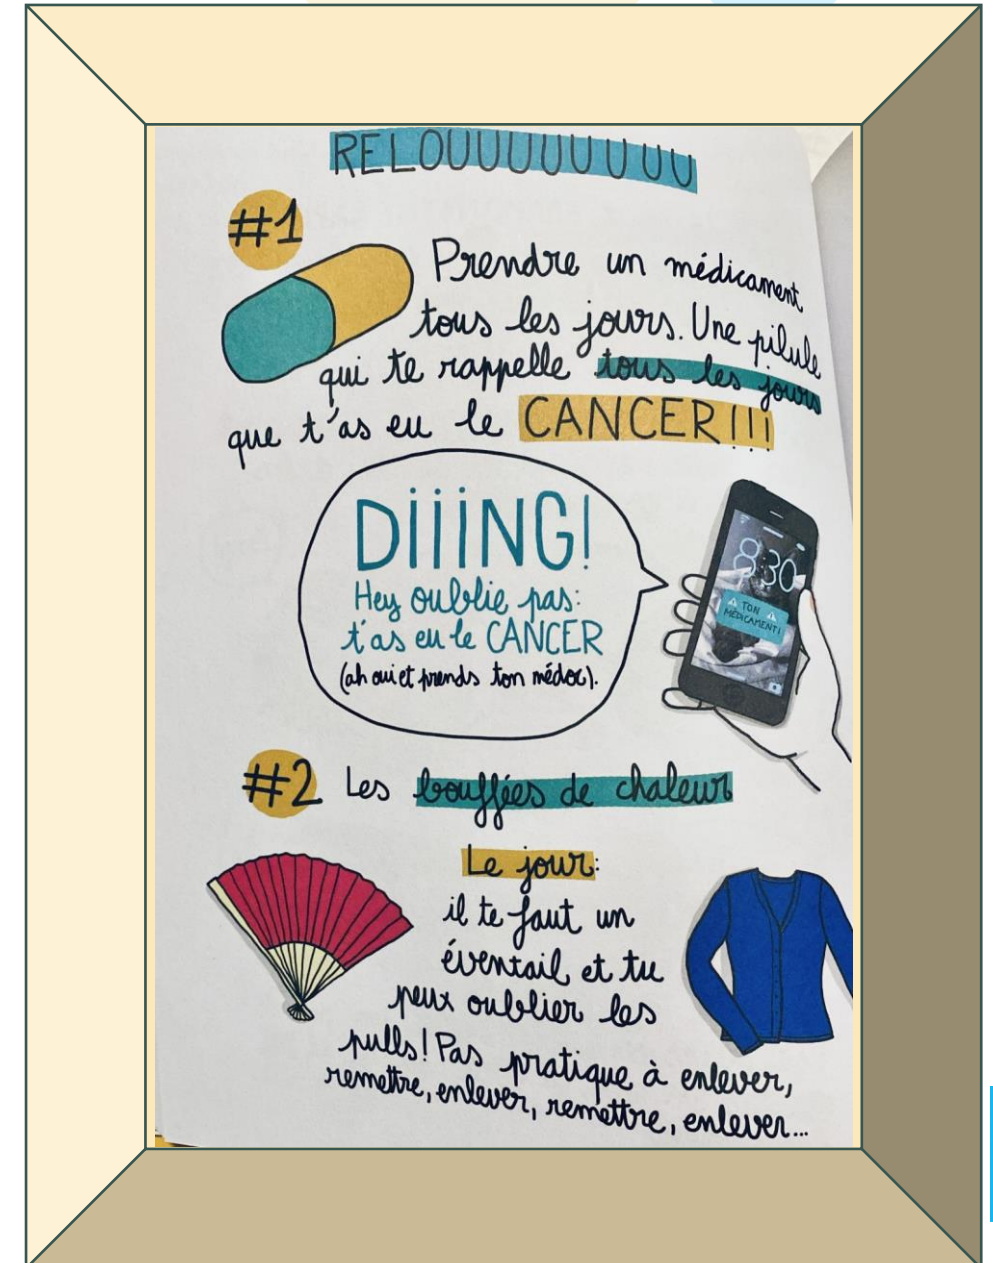 RELOUUUUUUUUU
#1
Prendre un médicament
tous les jours. Une pilule
qui te rappelle tous les jours
que t'as eu le CANCER!!!
DiiiNG!
Hey oublie pas:
t'as eu le CANCER
(ah oui et prends ton médoc).
8:30
TON
MÉDICAMENT!
#2 Les bouffées de chaleur
Le jour:
il te faut un
éventail et tu
peux oublier les
pulls! Pas pratique à enlever,
remettre, enlever, remettre, enlever...